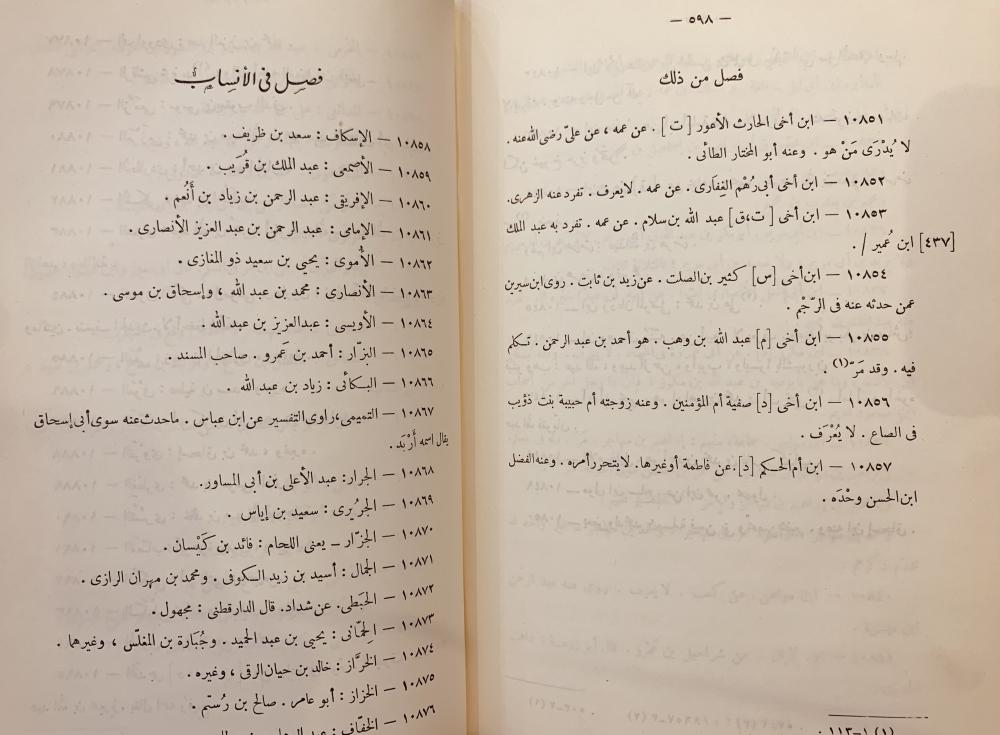 — ٥٩٨ —
فصل من ذلك
١٠٨٥١ — ابن أخى الحارث الأعور [ ت ] . عن عمه ، عن علىّ رضى الله عنه .
لا يُدْرَى مَنْ هو . وعنه أبو المختار الطائى .
١٠٨٥٢ — ابن أخى أبى رُهْم الغِفارى . عن عمه . لايعرف . تفرد عنه الزهرى .
١٠٨٥٣ — ابن أخى [ ت،ق ] عبد الله بن سلام . عن عمه . تفرد به عبد الملك
[٤٣٧] ابن عُمير / .
١٠٨٥٤ — ابن أخى [س] كثير بن الصلت . عن زيد بن ثابت . روى ابن سيرين
عمن حدثه عنه فى الرّجْم .
١٠٨٥٥ — ابن أخى [م] عبد الله بن وهب . هو أحمد بن عبد الرحمن . تكلم
فيه . وقد مَرّ (١) .
١٠٨٥٦ — ابن أخى [د] صفية أم المؤمنين . وعنه زوجته أم حبيبة بنت ذؤيب
فى الصاع . لا يُعْرَف .
١٠٨٥٧ — ابن أم الحكم [د]. عن فاطمة أوغيرها. لايتحرر أمره . وعنه الفضل
ابن الحسن وحْدَه .
(١) ١-١١٣ .
فصل فى الأنساب
١٠٨٥٨ — الإسكاف : سعد بن ظريف .
١٠٨٥٩ — الأصمعى : عبد الملك بن قُرَيب .
١٠٨٦٠ — الإفريقى : عبد الرحمن بن زياد بن أَنْعُم .
١٠٨٦١ — الإمامى : عبد الرحمن بن عبد العزيز الأنصارى .
١٠٨٦٢ — الأُموى : يحيى بن سعيد ذو المغازى .
١٠٨٦٣ — الأنصارى : محمد بن عبد الله ، وإسحاق بن موسى .
١٠٨٦٤ — الأويسى : عبدالعزيز بن عبد الله .
١٠٨٦٥ — البزّار : أحمد بن عَمرو . صاحب المسند .
١٠٨٦٦ — البكائى : زياد بن عبد الله .
١٠٨٦٧ — التميمى ، راوى التفسير عن ابن عباس . ماحدث عنه سوى أبى إسحاق
يقال اسمه أَرْبَد .
١٠٨٦٨ — الجرار : عبد الأعلى بن أبى المساور .
١٠٨٦٩ — الجرُيرى : سعيد بن إياس .
١٠٨٧٠ — الجزّار – يعنى اللحام : فائد بن كَيْسان .
١٠٨٧١ — الجمال : أسيد بن زيد الكوفى . ومحمد بن مهران الرازى .
١٠٨٧٢ — الحَبَطى. عن شداد. قال الدارقطنى : مجهول .
١٠٨٧٣ — الحِمّانى : يحيى بن عبد الحميد . وجُبَارة بن المغلّس ، وغيرهما .
١٠٨٧٤ — الخرَّاز : خالد بن حيان الرقى ، وغيره .
١٠٨٧٥ — الخزاز : أبو عامر . صالح بن رُستم .
١٠٨٧٦ — الخفّاف